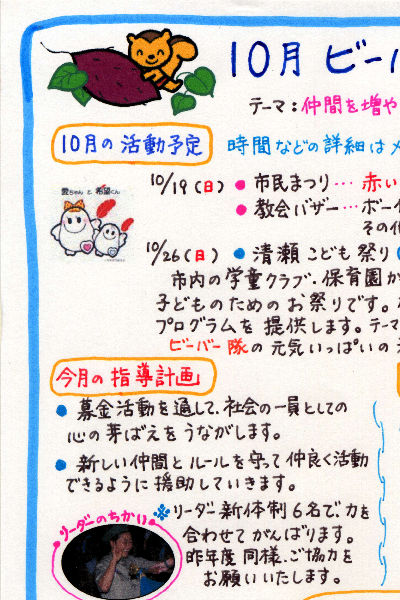 10月 ビー
テーマ:仲間を増や
10月の活動予定
時間などの詳細は
愛ちゃん と 希望くん
10/19(日) ●市民まつり… 赤い
●教会バザー… ボー
その
10/26(日) ●清瀬こども祭り
市内の学童クラブ.保育園
子どものためのお祭りです。
プログラムを提供します。テーマ
ビーバー隊の元気いっぱいの
今月の指導計画
●募金活動を通して、社会の一員としての
心の芽ばえをうながします。
●新しい仲間とルールを守って仲良く活動
できるように援助していきます。
リーダーのちかい
※リーダー新体制6名で力を
合わせてがんばります。
昨年度同様、ご協力を
お願いいたします。